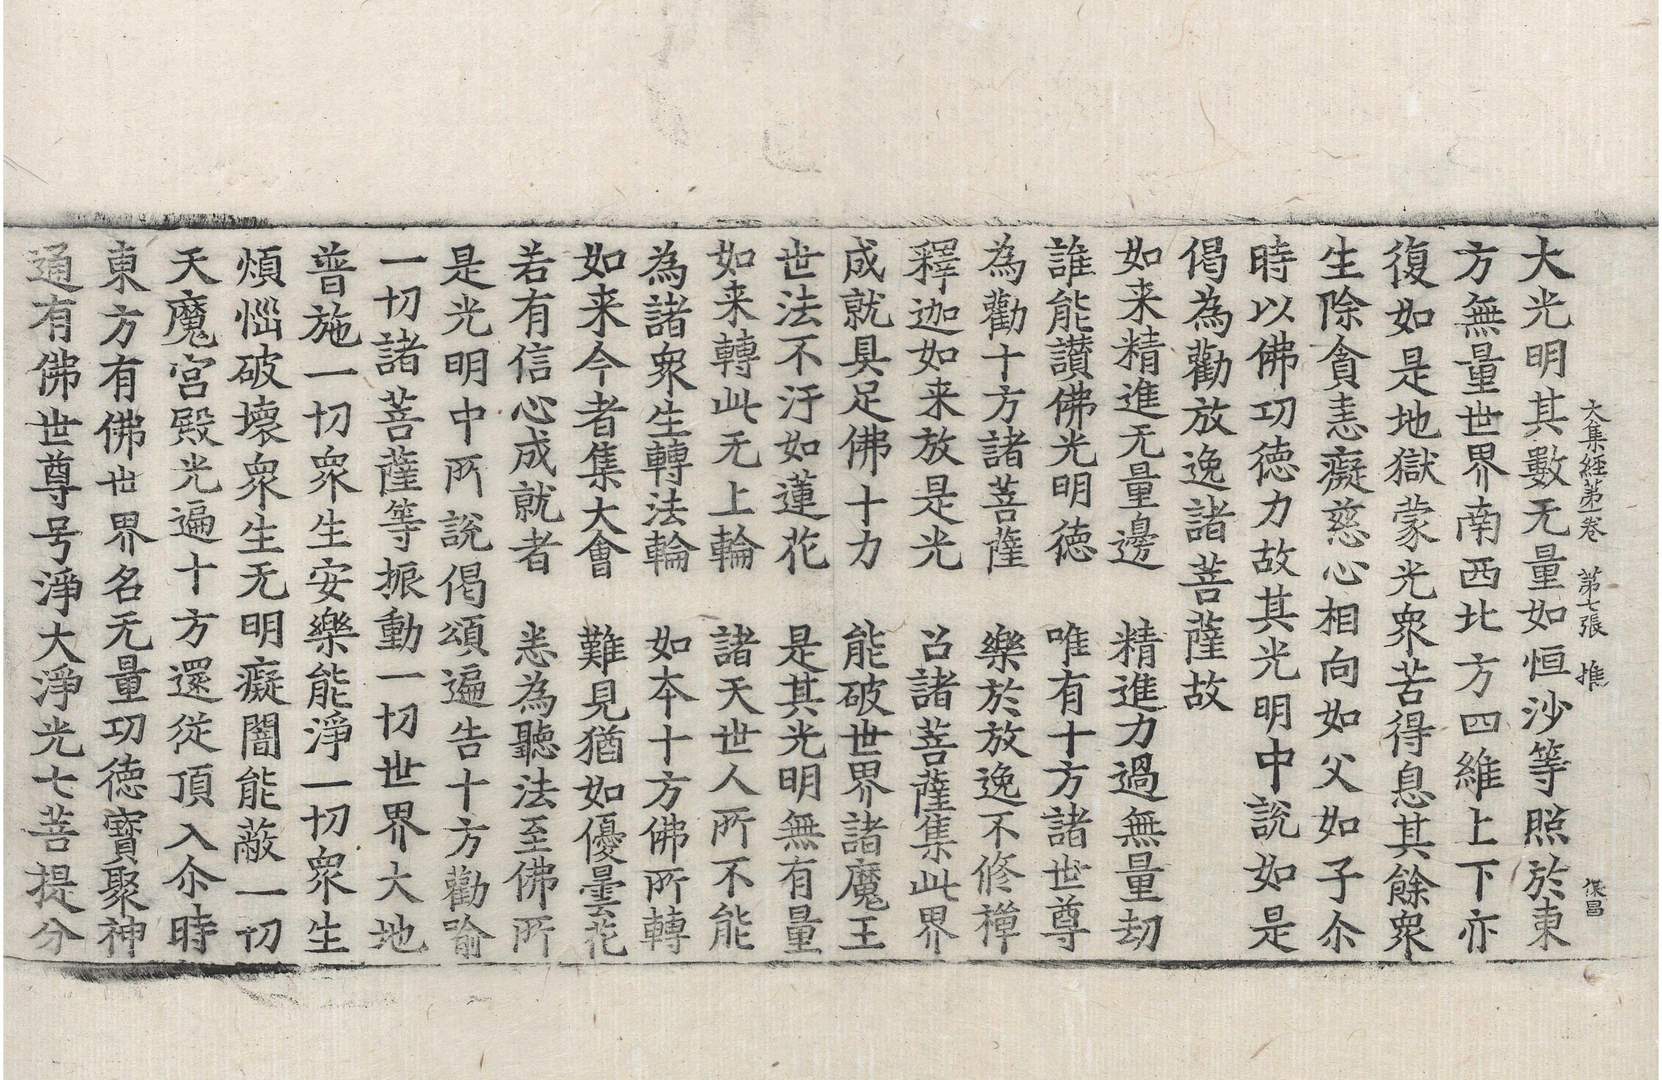 大集経第一卷　第七張　推　保昌
大光明其數无量如恒沙等照於東
方無量世界南西北方四維上下亦
復如是地獄蒙光衆苦得息其餘衆
生除貪恚癡慈心相向如父如子尒
時以佛功德力故其光明中說如是
偈為勸放逸諸菩薩故
如来精進无量邊　精進力過無量劫
誰能讃佛光明德　唯有十方諸世尊
為勸十方諸菩薩　樂於放逸不修禪
釋迦如来放是光　召諸菩薩集此界
成就具足佛十力　能破世界諸魔王
世法不汙如蓮花　是其光明無有量
如来轉此无上輪　諸天世人所不能
為諸衆生轉法輪　如夲十方佛所轉
如来今者集大會　難見猶如優曇花
若有信心成就者　悉為聽法至佛所
是光明中所說偈頌遍告十方勸喻
一切諸菩薩等振動一切世界大地
普施一切衆生安樂能淨一切衆生
煩惱破壞衆生无明癡闇能蔽一切
天魔宮殿光遍十方還從頂入尒時
東方有佛世界名无量功德寳聚神
通有佛世尊号淨大淨光七菩提分